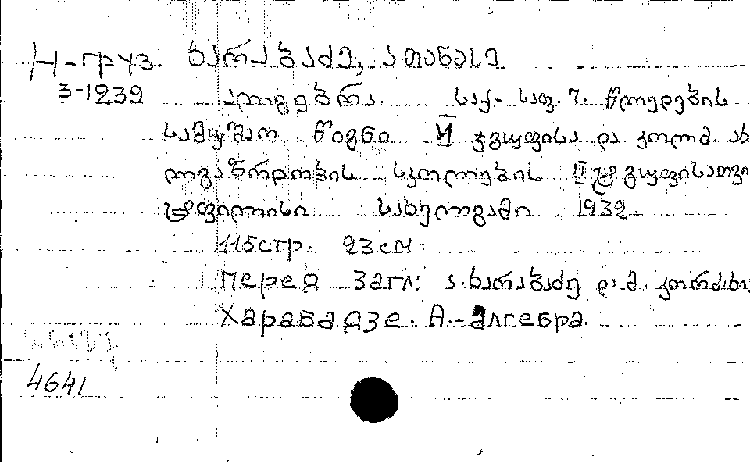 Н-груз. ხარაბაძე, ათანასე
3-1232 ალგებრა. საქ. საფ. 7. წლიულების
სამუშაო წიგნი VI ჯგუფისა და კოლმ. ახ
ლგაზრდობის სკოლების II ჯგუფისათვი
ტფილისი სახელგამი 1932
115стр. 23см
Перед загл: ა. ხარაბაძე და მ.
Харабадзе. А.-Алгебра.
4641